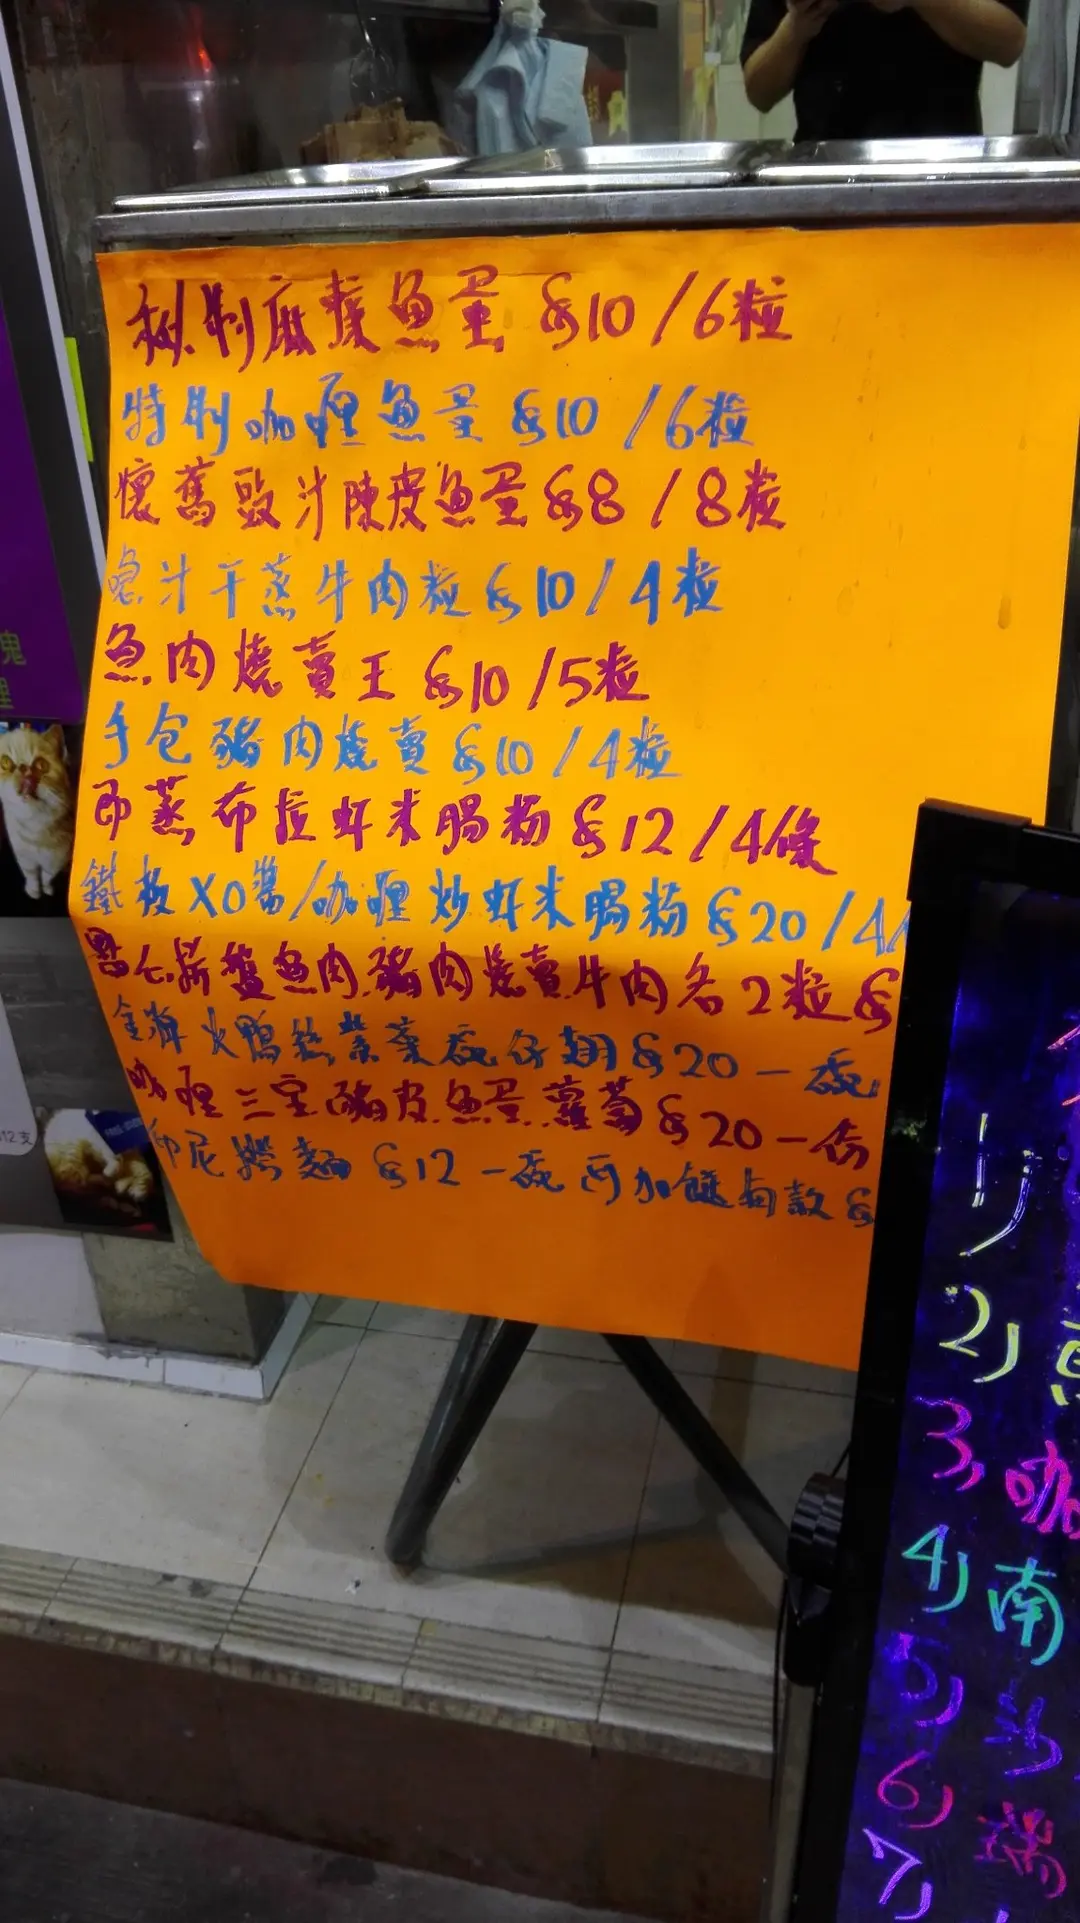 秘制麻辣魚蛋 $10/6粒
特制咖喱魚蛋 $10/6粒
懷舊豉汁陳皮魚蛋 $8/8粒
汁干蒸牛肉粒 $10/4粒
魚肉燒賣王 $10/5粒
手包豬肉燒賣 $10/4粒
即蒸布拉虾米腸粉 $12/4條
鐵板XO醬/咖喱炒虾米腸粉 $20/4
點心拼盤魚肉.豬肉燒賣.牛肉各2粒 $
金牌火鴨絲紫菜碗仔翅 $20一碗
咖喱三宝豬皮.魚蛋.蘿蔔 $20一份
印尼撈麵 $12一碗 可加餸每款 $
鬼
12支
1)
2)
3)咖
4)南
5)
6)瑞
7)